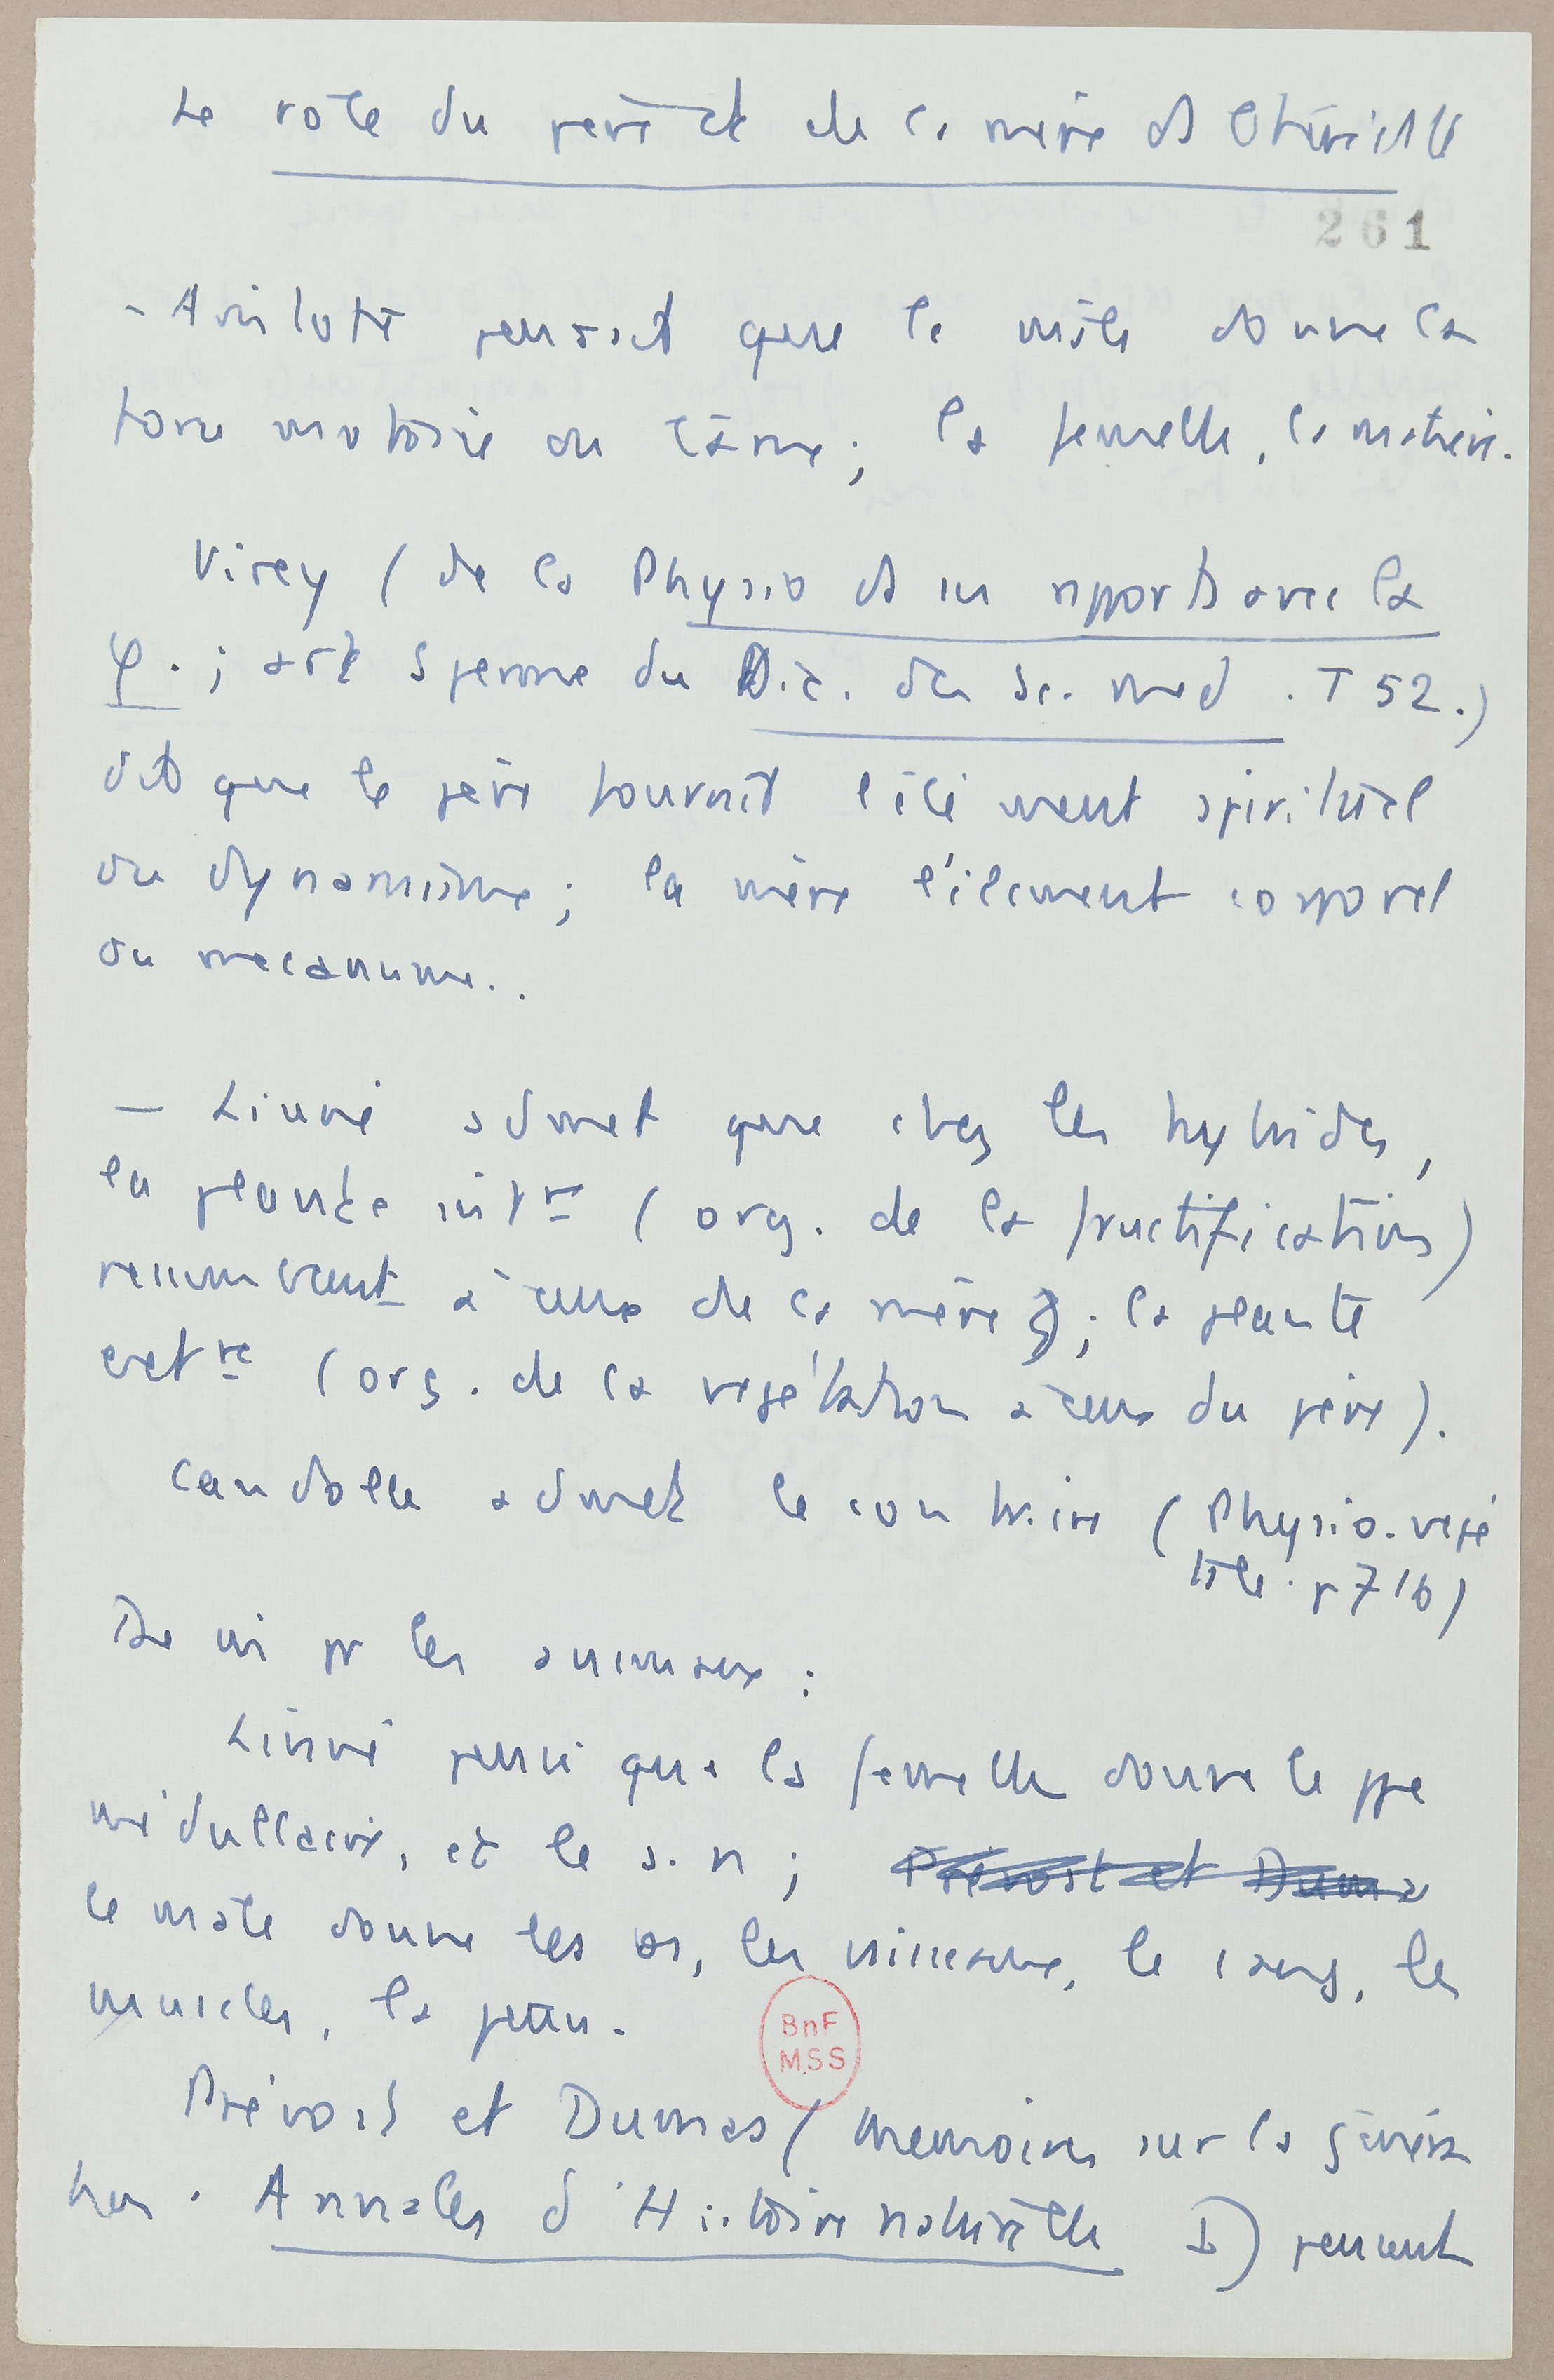 Le rôle du père et de la mère ds l'hérédité
261
- Aristote pensait que le mâle donne la
force motrice ou l'âme ; la femelle, la matière.
Virey ( de la Physio ds ses rapports avec la
φ. ; art Sperme du Dic. des Sc. med. T 52.)
dit que le père fournit l'élément spirituel
ou dynamisme ; la mère l'élément corporel
ou mécanisme..
— Linné admet que chez les hybrides,
la plante intre ( org. de la fructification)
ressemblent à ceux de la mère ; la plante
extre ( org. de la végétation à ceux du père ).
Candolle admet le contraire ( Physio. végé
tale. p 716 )
De mê pr les animaux :
Linné pense que la femelle donne le ppe
médullaire, et le s. n ; Prévost et Dumas
le mâle donne les os, les viscères, le sang, les
muscles, la peau.
BnF
MSS
Prévost et Dumas ( Mémoires sur la généra
tion. Annales d'Histoire naturelle I) pensent